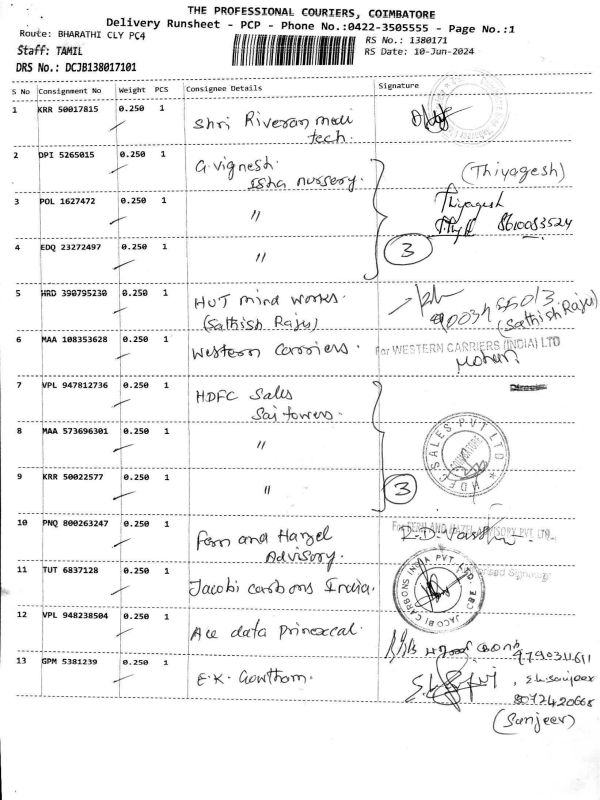 THE PROFESSIONAL COURIERS, COIMBATORE
Delivery Runsheet - PCP - Phone No.:0422-3505555 - Page No.:1
Route: BHARATHI CLY PC4
RS No.: 1380171
Staff: TAMIL
RS Date: 10-Jun-2024
DRS No.: DCJB138017101
S No Consignment No Weight PCS Consignee Details Signature
1 KRR 50017815 0.250 1 Shri Riveran medi
tech.
2 DPI 5265015 0.250 1 G. Vignesh. (Thiyagesh)
Isha nursery.
3 POL 1627472 0.250 1 " Thiyagesh
8610083524
4 EDQ 23272497 0.250 1 " 3
5 HRD 390795230 0.250 1 HUT mind works.
(Sathish Raju) (Sathish Raju)
6 MAA 108353628 0.250 1 Western Carriers. For WESTERN CARRIERS (INDIA) LTD
Mohan
7 VPL 947812736 0.250 1 HDFC Sales
Sai towers.
8 MAA 573696301 0.250 1 " HDFC SALES PVT LTD
9 KRR 50022577 0.250 1 " 3
10 PNQ 800263247 0.250 1 Fern and Hazel For FERN AND HAZEL ADVISORY PVT LTD.
Advisory.
11 TUT 6837128 0.250 1 Jacobi carbons India. JACOBI CARBONS INDIA PVT LTD CBE
12 VPL 948238504 0.250 1 Ace data
9790311611
13 GPM 5381239 0.250 1 E.K. Gowtham.
8072420668
(Sanjeev)